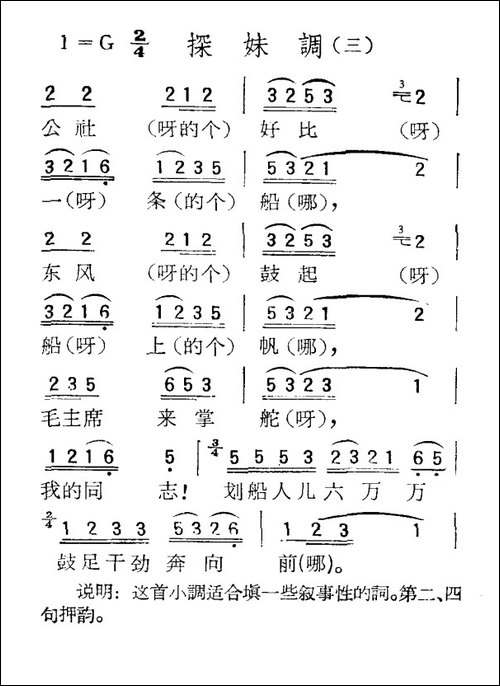 1=G 2/4 探妹調(三)
2 2 2 1 2 | 3 2 5 3 3 2 |
公社 (呀的个) 好比 (呀)
3 2 1 6 1 2 3 5 | 5 3 2 1 2 |
一(呀) 条(的个) 船(哪),
2 2 2 1 2 | 3 2 5 3 3 2 |
东风 (呀的个) 鼓起 (呀)
3 2 1 6 1 2 3 5 | 5 3 2 1 2 |
船(呀) 上(的个) 帆(哪),
2 3 5 6 5 3 | 5 3 2 3 1 |
毛主席 来掌 舵(呀),
1 2 1 6 5 | 3/4 5 5 5 3 2 3 2 1 6 5 |
我的同 志! 划船人儿六万万
2/4 1 2 3 3 5 3 2 6 | 1 2 3 1 |
鼓足干劲奔向 前(哪)。
说明: 这首小調适合塡一些叙事性的詞。第二、四
句押韵。